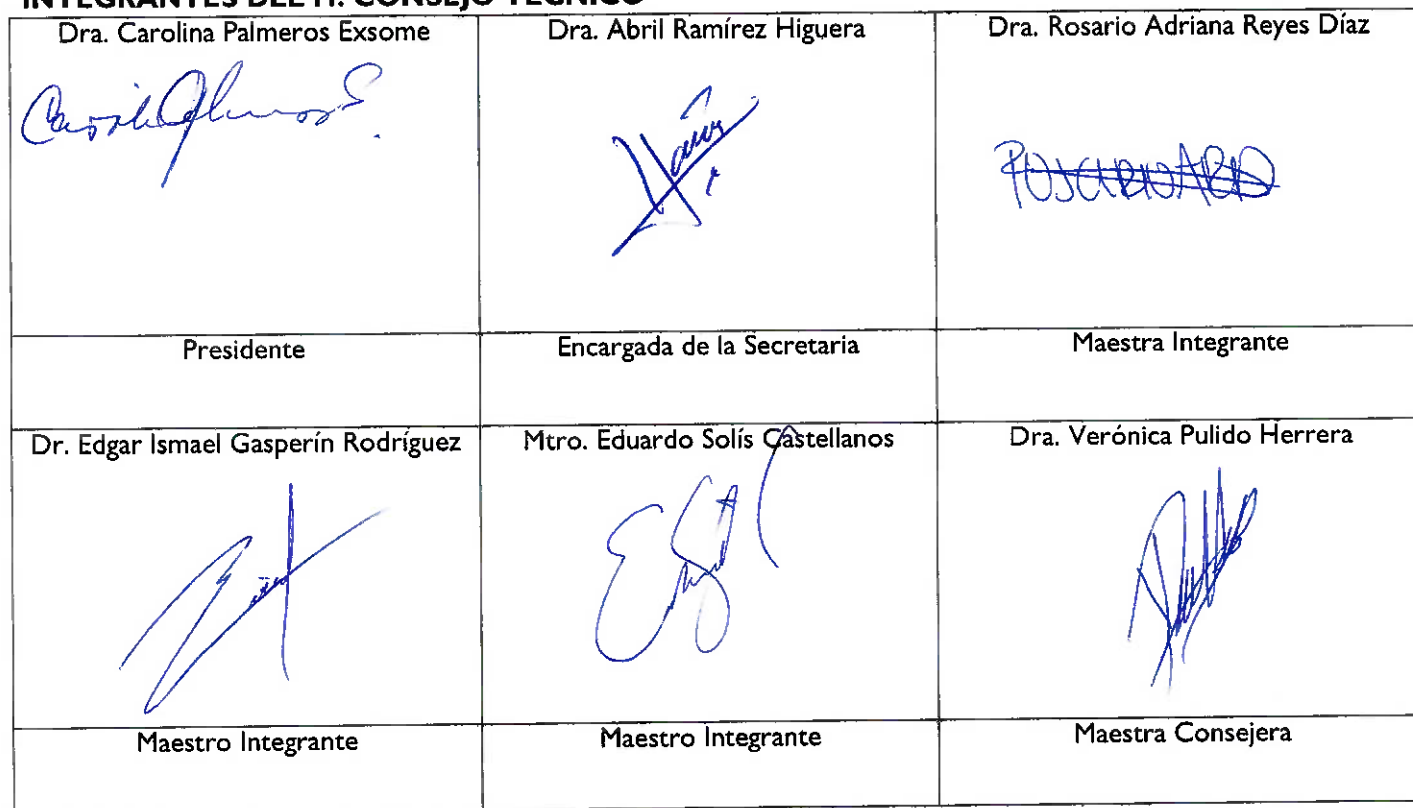 INTEGRANTES DEL H. CONSEJO TÉCNICO
Dra. Carolina Palmeros Exsome
Dra. Abril Ramírez Higuera
Dra. Rosario Adriana Reyes Díaz
Presidente
Encargada de la Secretaria
Maestra Integrante
Dr. Edgar Ismael Gasperín Rodríguez
Mtro. Eduardo Solís Castellanos
Dra. Verónica Pulido Herrera
Maestro Integrante
Maestro Integrante
Maestra Consejera